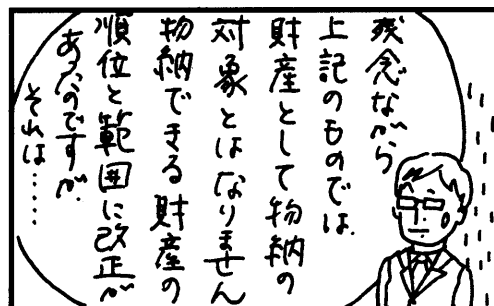 残念ながら
上記のものでは
財産として物納の
対象とはなりません
物納できる財産の
順位と範囲に改正が
あったのですが、
それは……